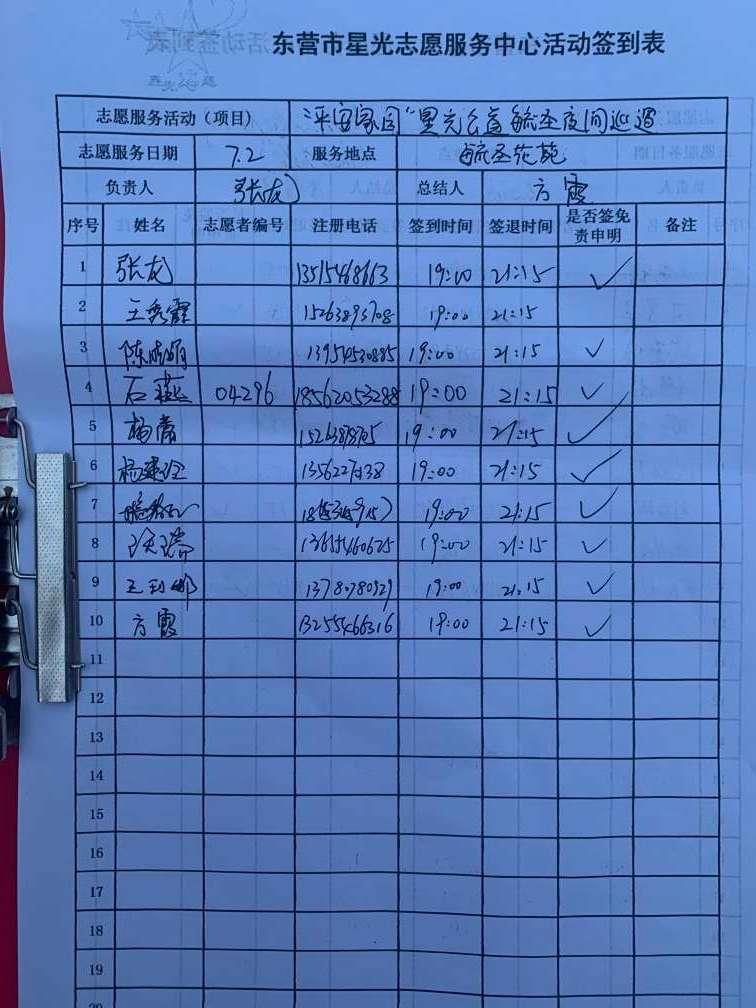 东营市星光志愿服务中心活动签到表
志愿服务活动（项目） "平安家园"星光公益毓圣夜间巡逻
志愿服务日期 7.2 服务地点 毓圣花苑
负责人 张龙 总结人 方霞
序号 姓名 志愿者编号 注册电话 签到时间 签退时间 是否签免责申明 备注
1 张龙 13515468663 19:00 21:15 ✓
2 王秀霞 15263893708 19:00 21:15
3 陈 13954530885 19:00 21:15 ✓
4 石燕 04296 18562053288 19:00 21:15 ✓
5 杨 19:00 21:15 ✓
6 杨建 19:00 21:15 ✓
7 19:00 21:15 ✓
8 13615460625 19:00 21:15 ✓
9 王 13780780929 19:00 21:15 ✓
10 方霞 13255466316 19:00 21:15 ✓
11
12
13
14
15
16
17
18
19